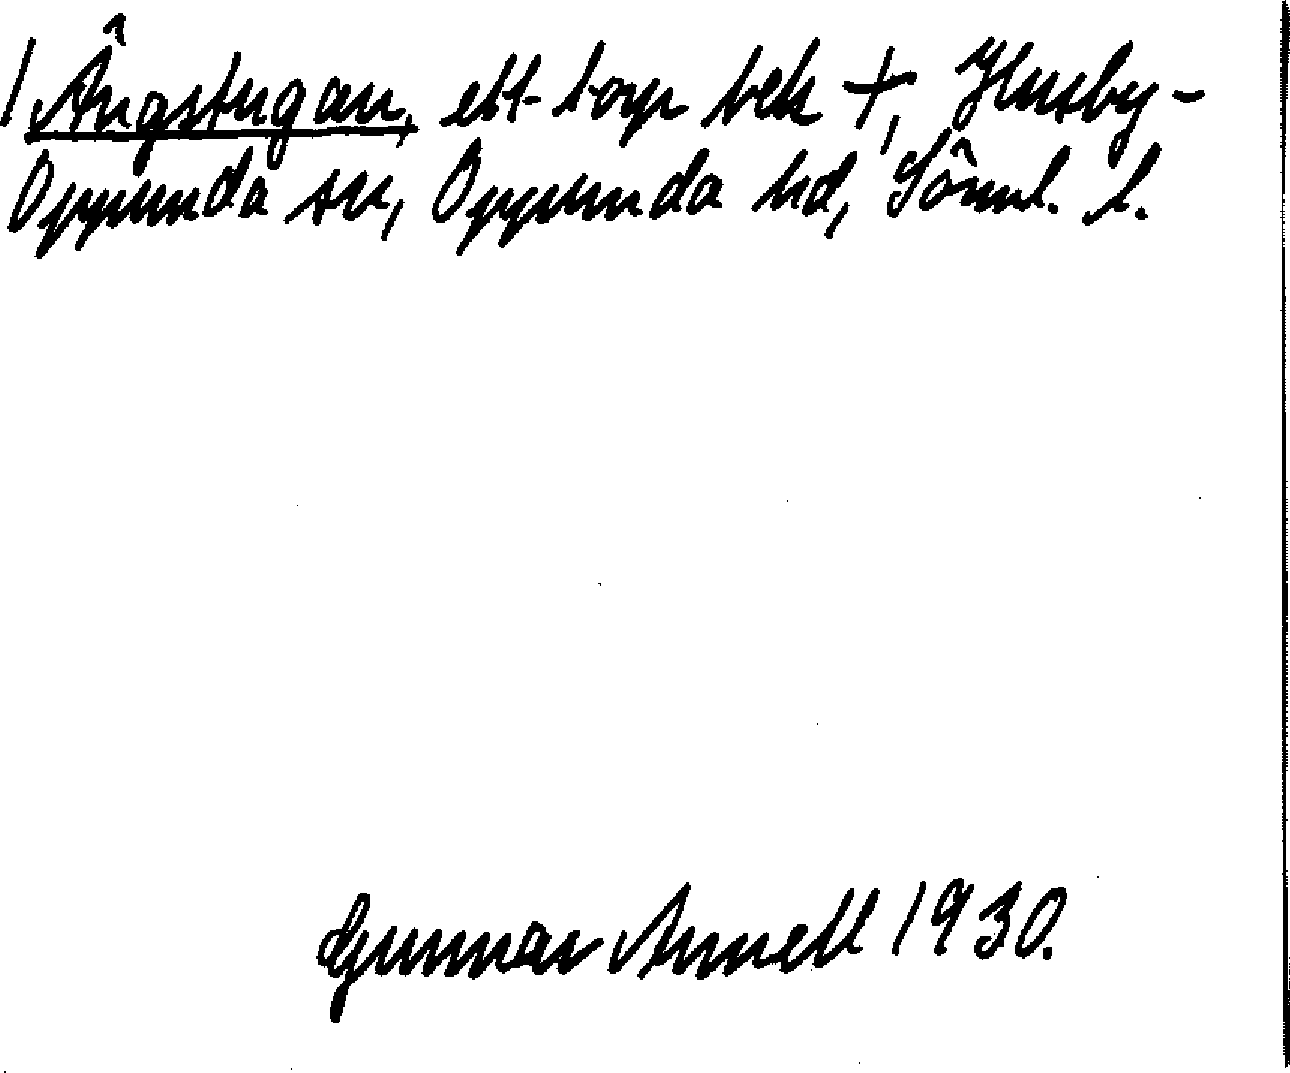 1 Ängstugan, ett torp bek +, Husby-
Oppunda sn, Oppunda hd, Sörml. l.
Gunnar Annell 1930.